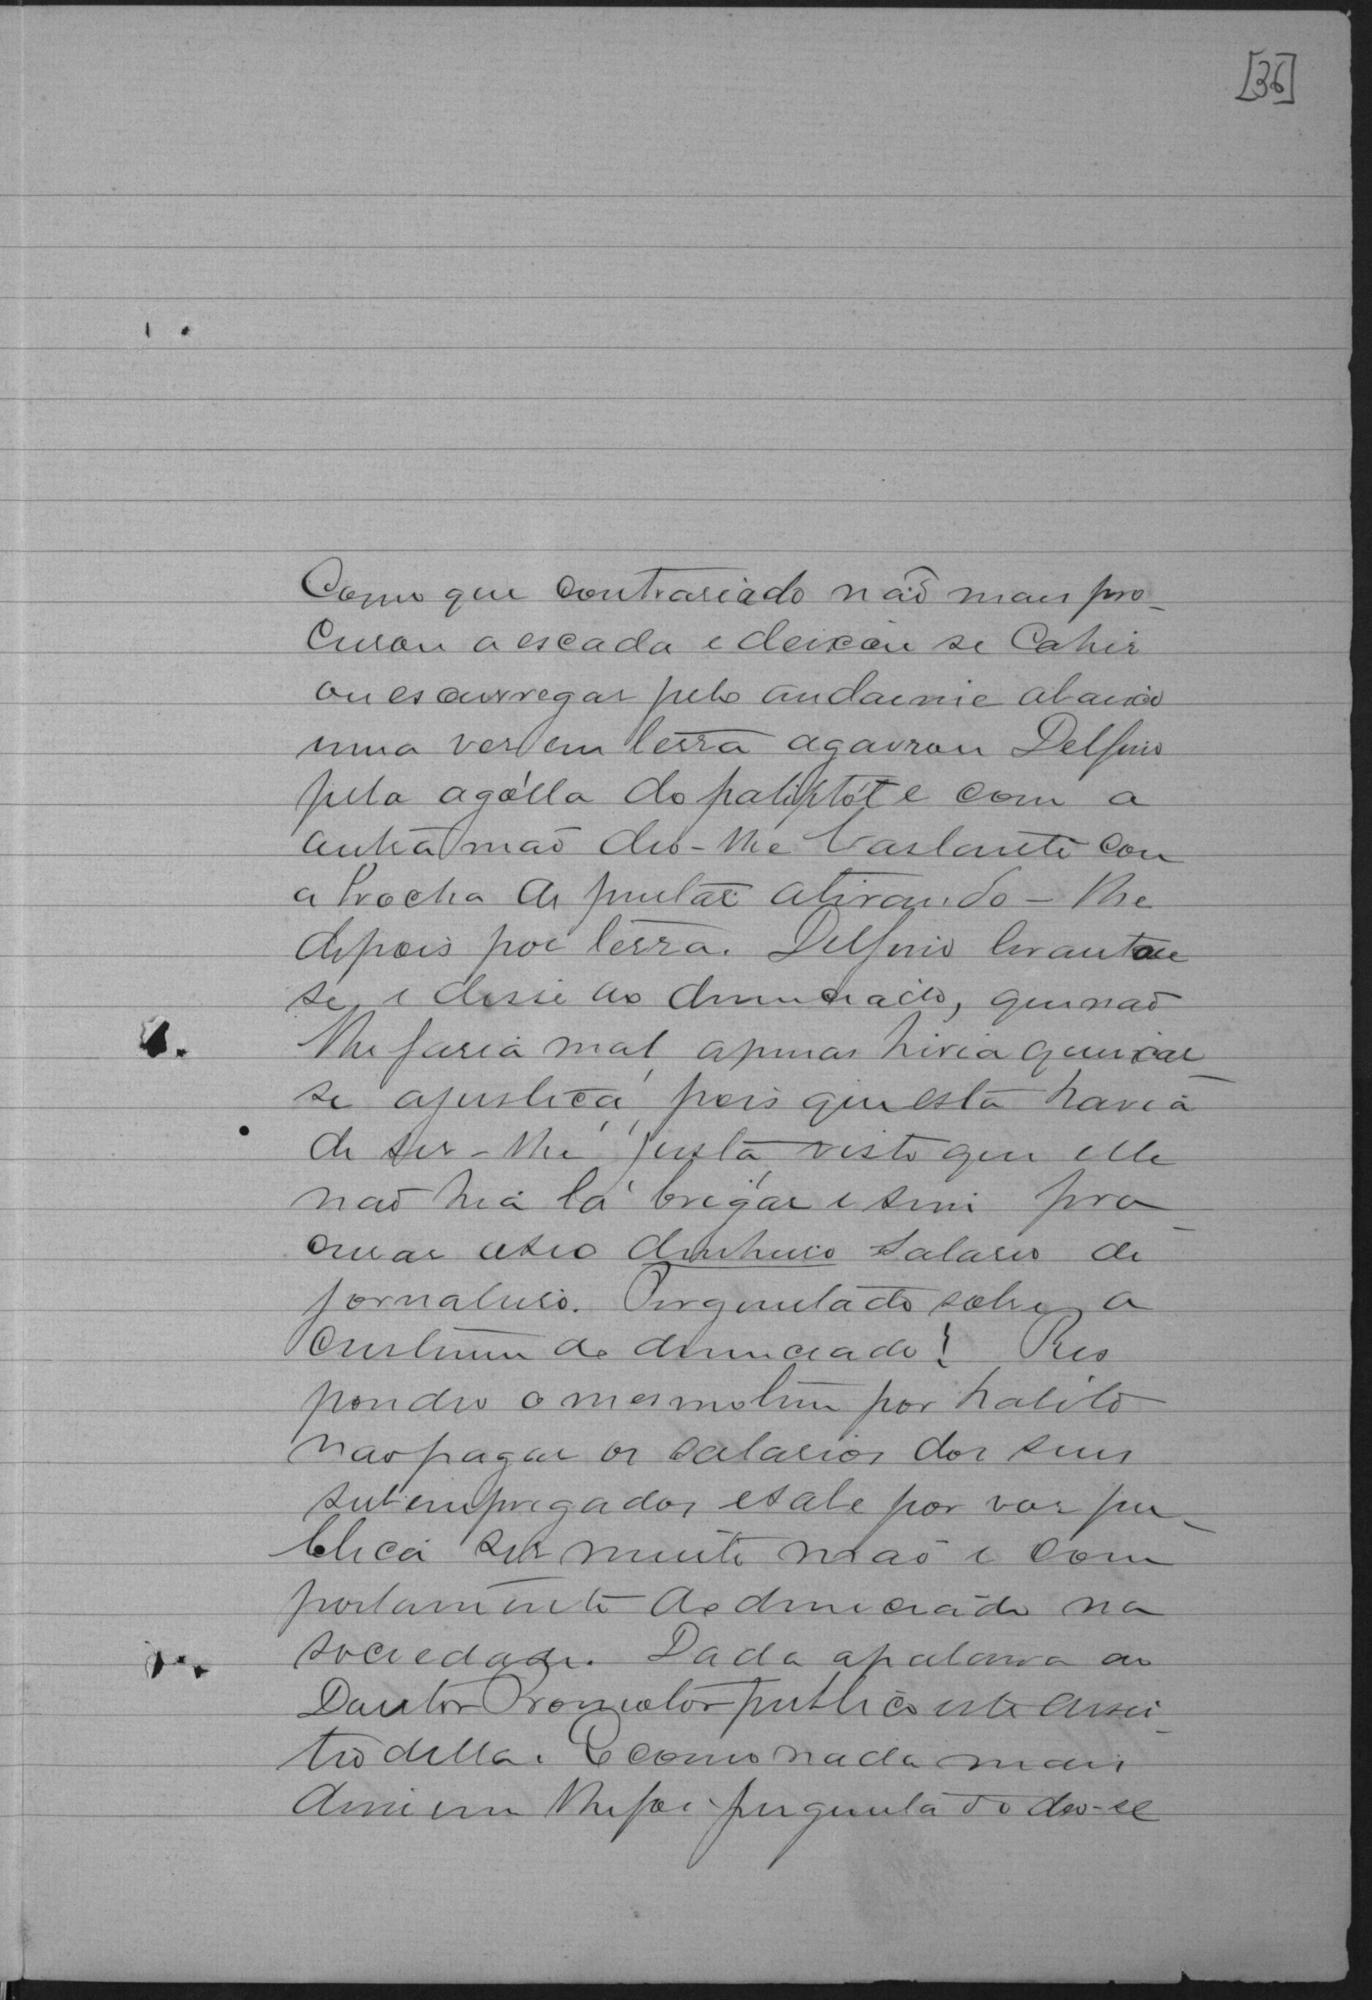 [36]
Como que contrariado não mais pro-
curou a escada e deixou se cahir
ou escurregar pelo andaime abaixo
uma vez em terra agarrou Delfino
pela agolla do palitót e com a
outra mão deo-lhe bastante com
a brocha de pintar atirando-lhe
depois por terra. Delfino levantou
se e disse ao denunciado, que não
lhe faria mal, apenas hiria queixar
se a justiça, pois que esta havia
de ser-lhe justa visto que elle
não hia lá brigar e sim pro-
curar o seo dinheiro salario de
jornaleiro. Perguntado sobre o
custume do denunciado! Res
pondeo o mesmo tem por habito
não pagar os salarios dos seus
subempregados, e sabe por vos pu-
blica ser muito mao o com
portamento do denunciado na
sociedade. Dada a palavra ao
Doutor Promotor publico este desis-
tio della. E como nada mais
disse nem lhe foi perguntado deo-se